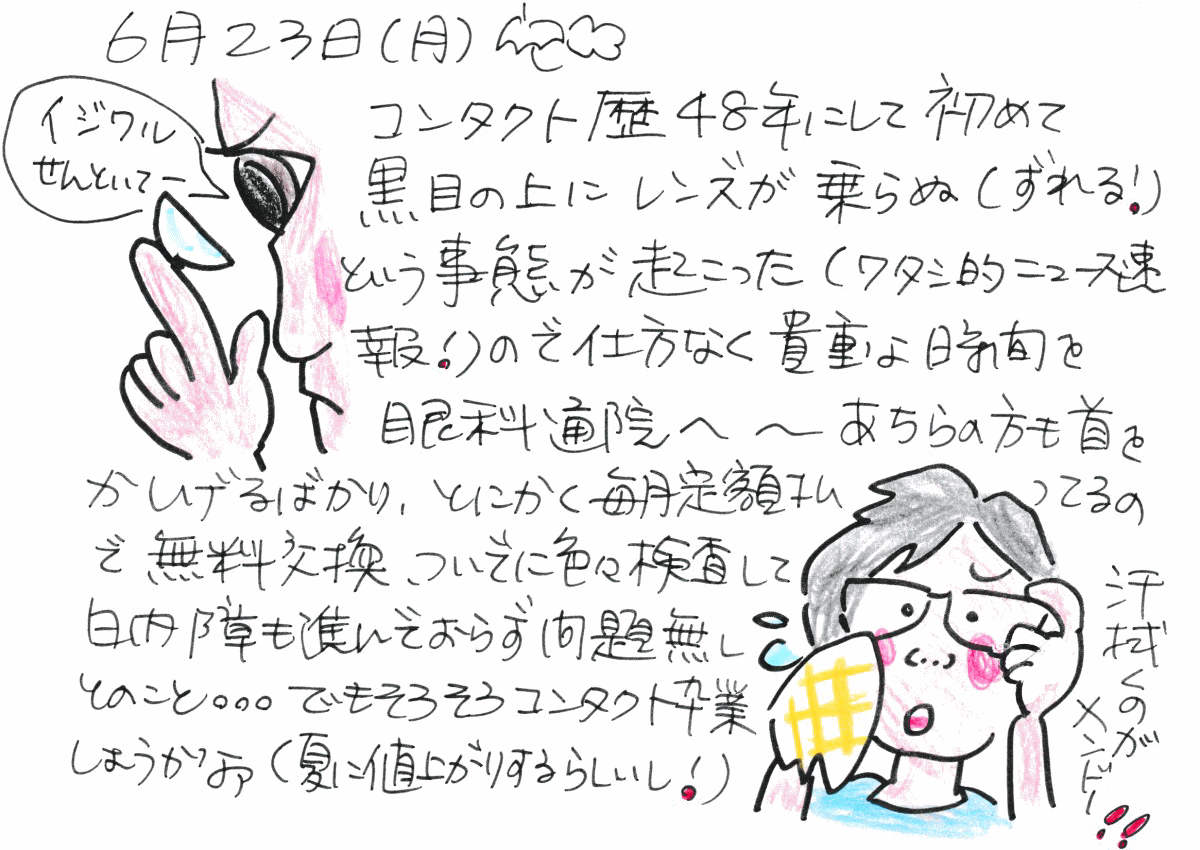 6月23日(月)
イジワル
せんといてー
コンタクト歴48年にして初めて
黒目の上にレンズが乗らぬ(ずれる!)
という事態が起こった(ワタシ的ニュース速
報!)ので仕方なく貴重な時間を
眼科通院へ〜あちらの方も首を
かしげるばかり、とにかく毎月定額払ってるの
で無料交換、ついでに色々検査して
白内障も進んでおらず問題無し
とのこと。。。でもそろそろコンタクト卒業
しようかなァ(夏に値上がりするらしいし!)
汗拭くのが
メンドー!!